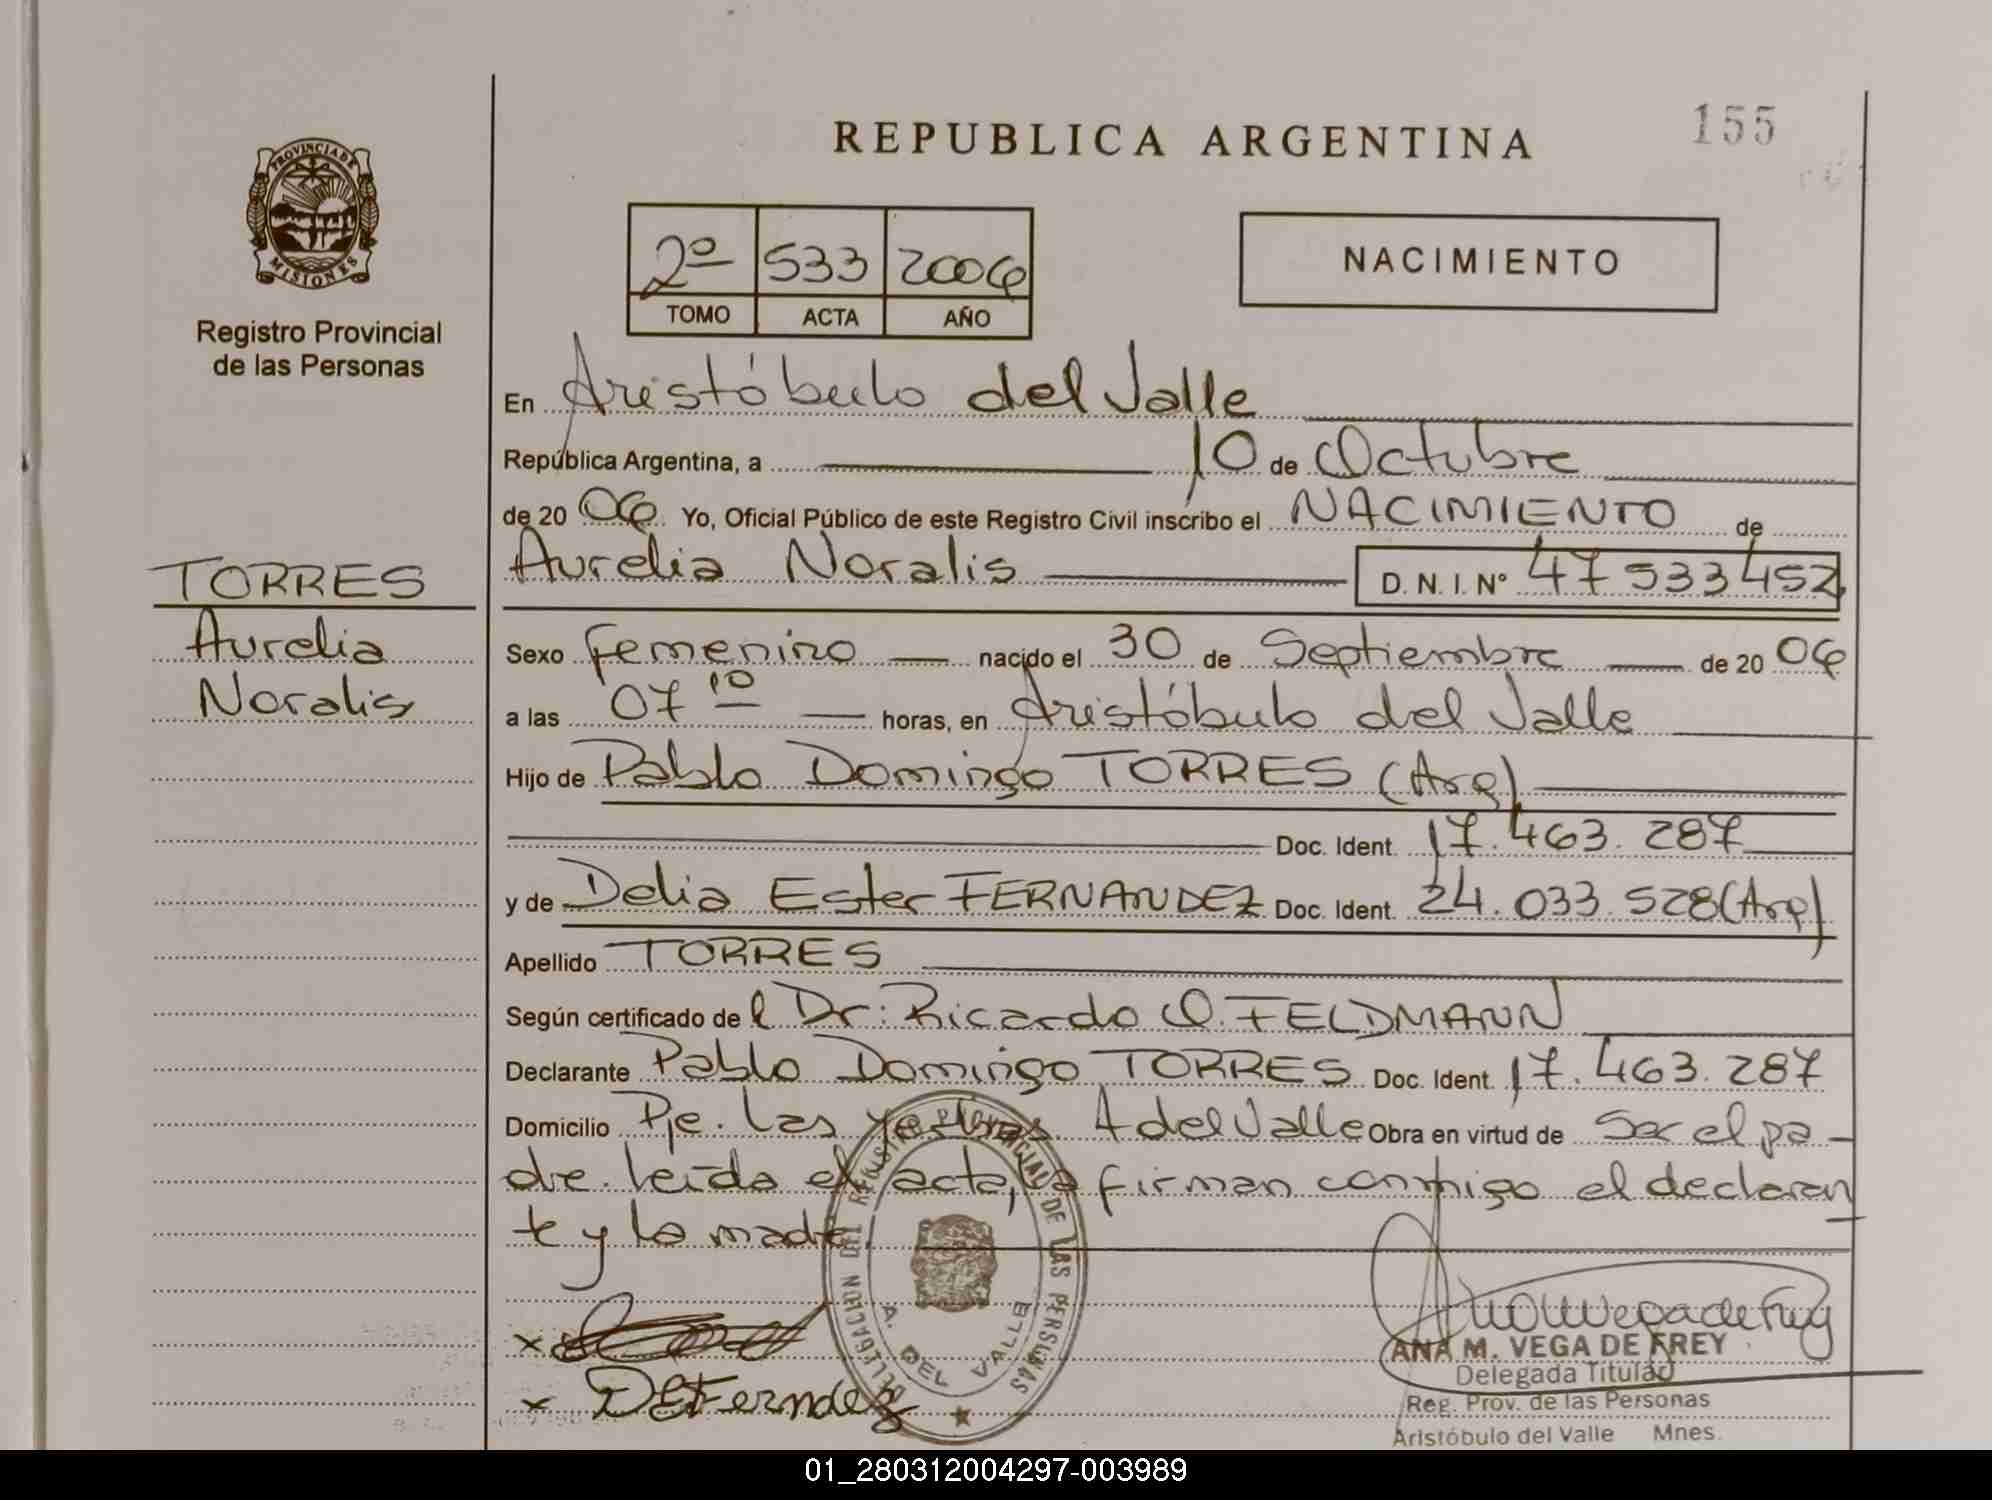 REPUBLICA ARGENTINA
155
PROVINCIA DE
MISIONES
Registro Provincial
de las Personas
2º 533 2006
TOMO ACTA AÑO
NACIMIENTO
En Aristóbulo del Valle
República Argentina, a 10 de Octubre
de 20 06 Yo, Oficial Público de este Registro Civil inscribo el NACIMIENTO de
TORRES
Aurelia
Noralis
Aurelia Noralis D. N. I. Nº 47533452
Sexo femenino nacido el 30 de Septiembre de 20 06
a las 07 10 horas, en Aristóbulo del Valle
Hijo de Pablo Domingo TORRES (Arg)
Doc. Ident. 17.463.287
y de Delia Ester FERNANDEZ Doc. Ident. 24.033.528 (Arg)
Apellido TORRES
Según certificado de l Dr: Ricardo O. FELDMANN
Declarante Pablo Domingo TORRES Doc. Ident. 17.463.287
Domicilio Pje. Las A del Valle Obra en virtud de Ser el pa-
dre. leída el acta, la firman conmigo el declaran
te y la madre.
DELEGACION DEL REGISTRO PROVINCIAL DE LAS PERSONAS
A. DEL VALLE
x
x DEFernandez
Ana M Vega de Frey
ANA M. VEGA DE FREY
Delegada Titular
Reg. Prov. de las Personas
Aristóbulo del Valle Mnes.
01_280312004297-003989